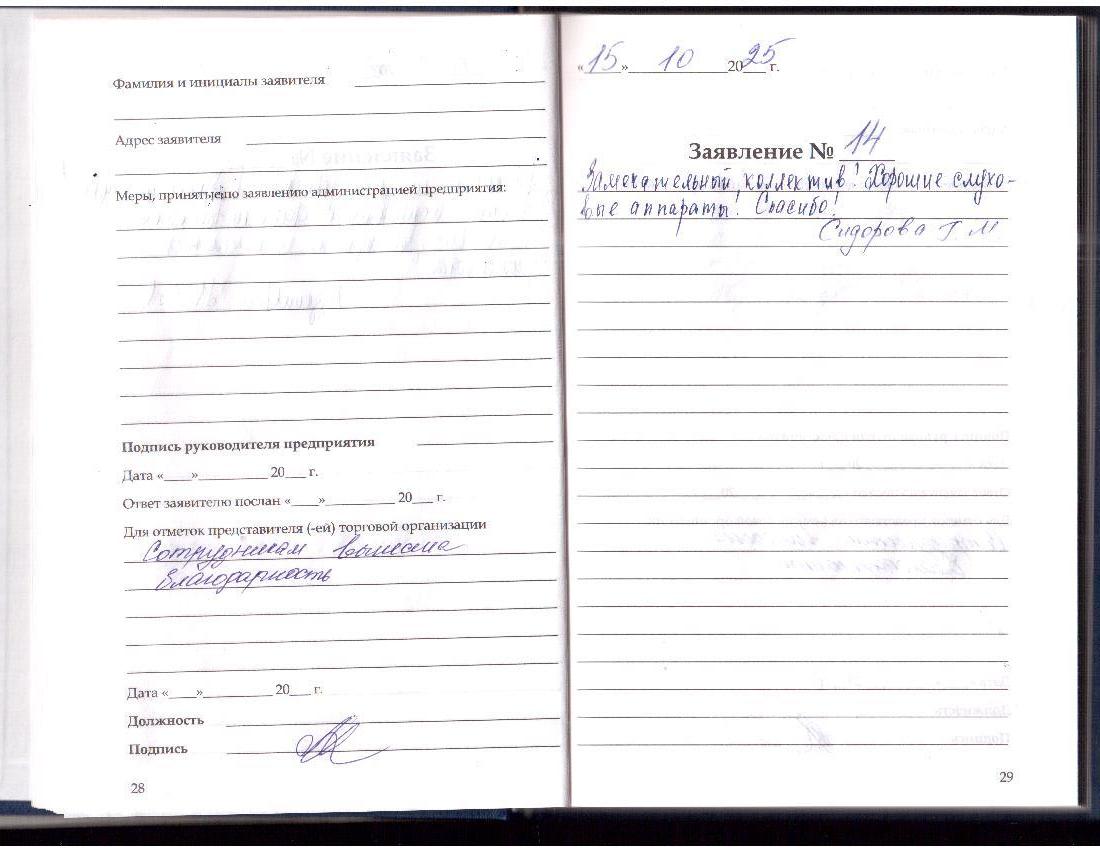 Фамилия и инициалы заявителя
Адрес заявителя
Меры, принятые по заявлению администрацией предприятия:
Подпись руководителя предприятия
Дата «____»__________ 20___ г.
Ответ заявителю послан «____»__________ 20___ г.
Для отметок представителя (-ей) торговой организации
Сотрудникам вынесена
благодарность
Дата «____»__________ 20___ г.
Должность
Подпись
28
«15» 10 2025 г.
Заявление № 14
Замечательный коллектив! Хорошие слухо-
вые аппараты! Спасибо!
Сидорова Г. М
29